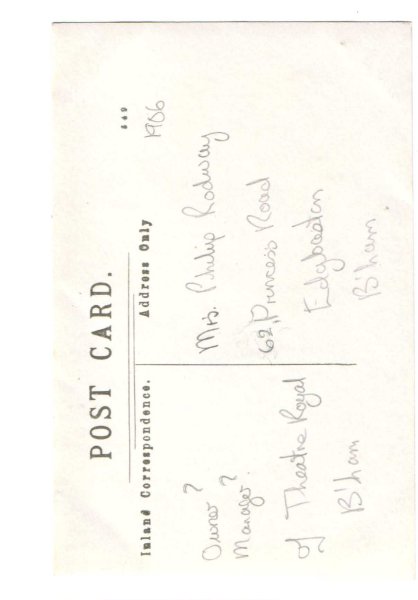 POST CARD.
Inland Correspondence.
Address Only
449
1906
Owner ?
Manager ?
of Theatre Royal
B'ham
Mrs. Philip Rodway
62, Princess Road
Edgbaston
B'ham